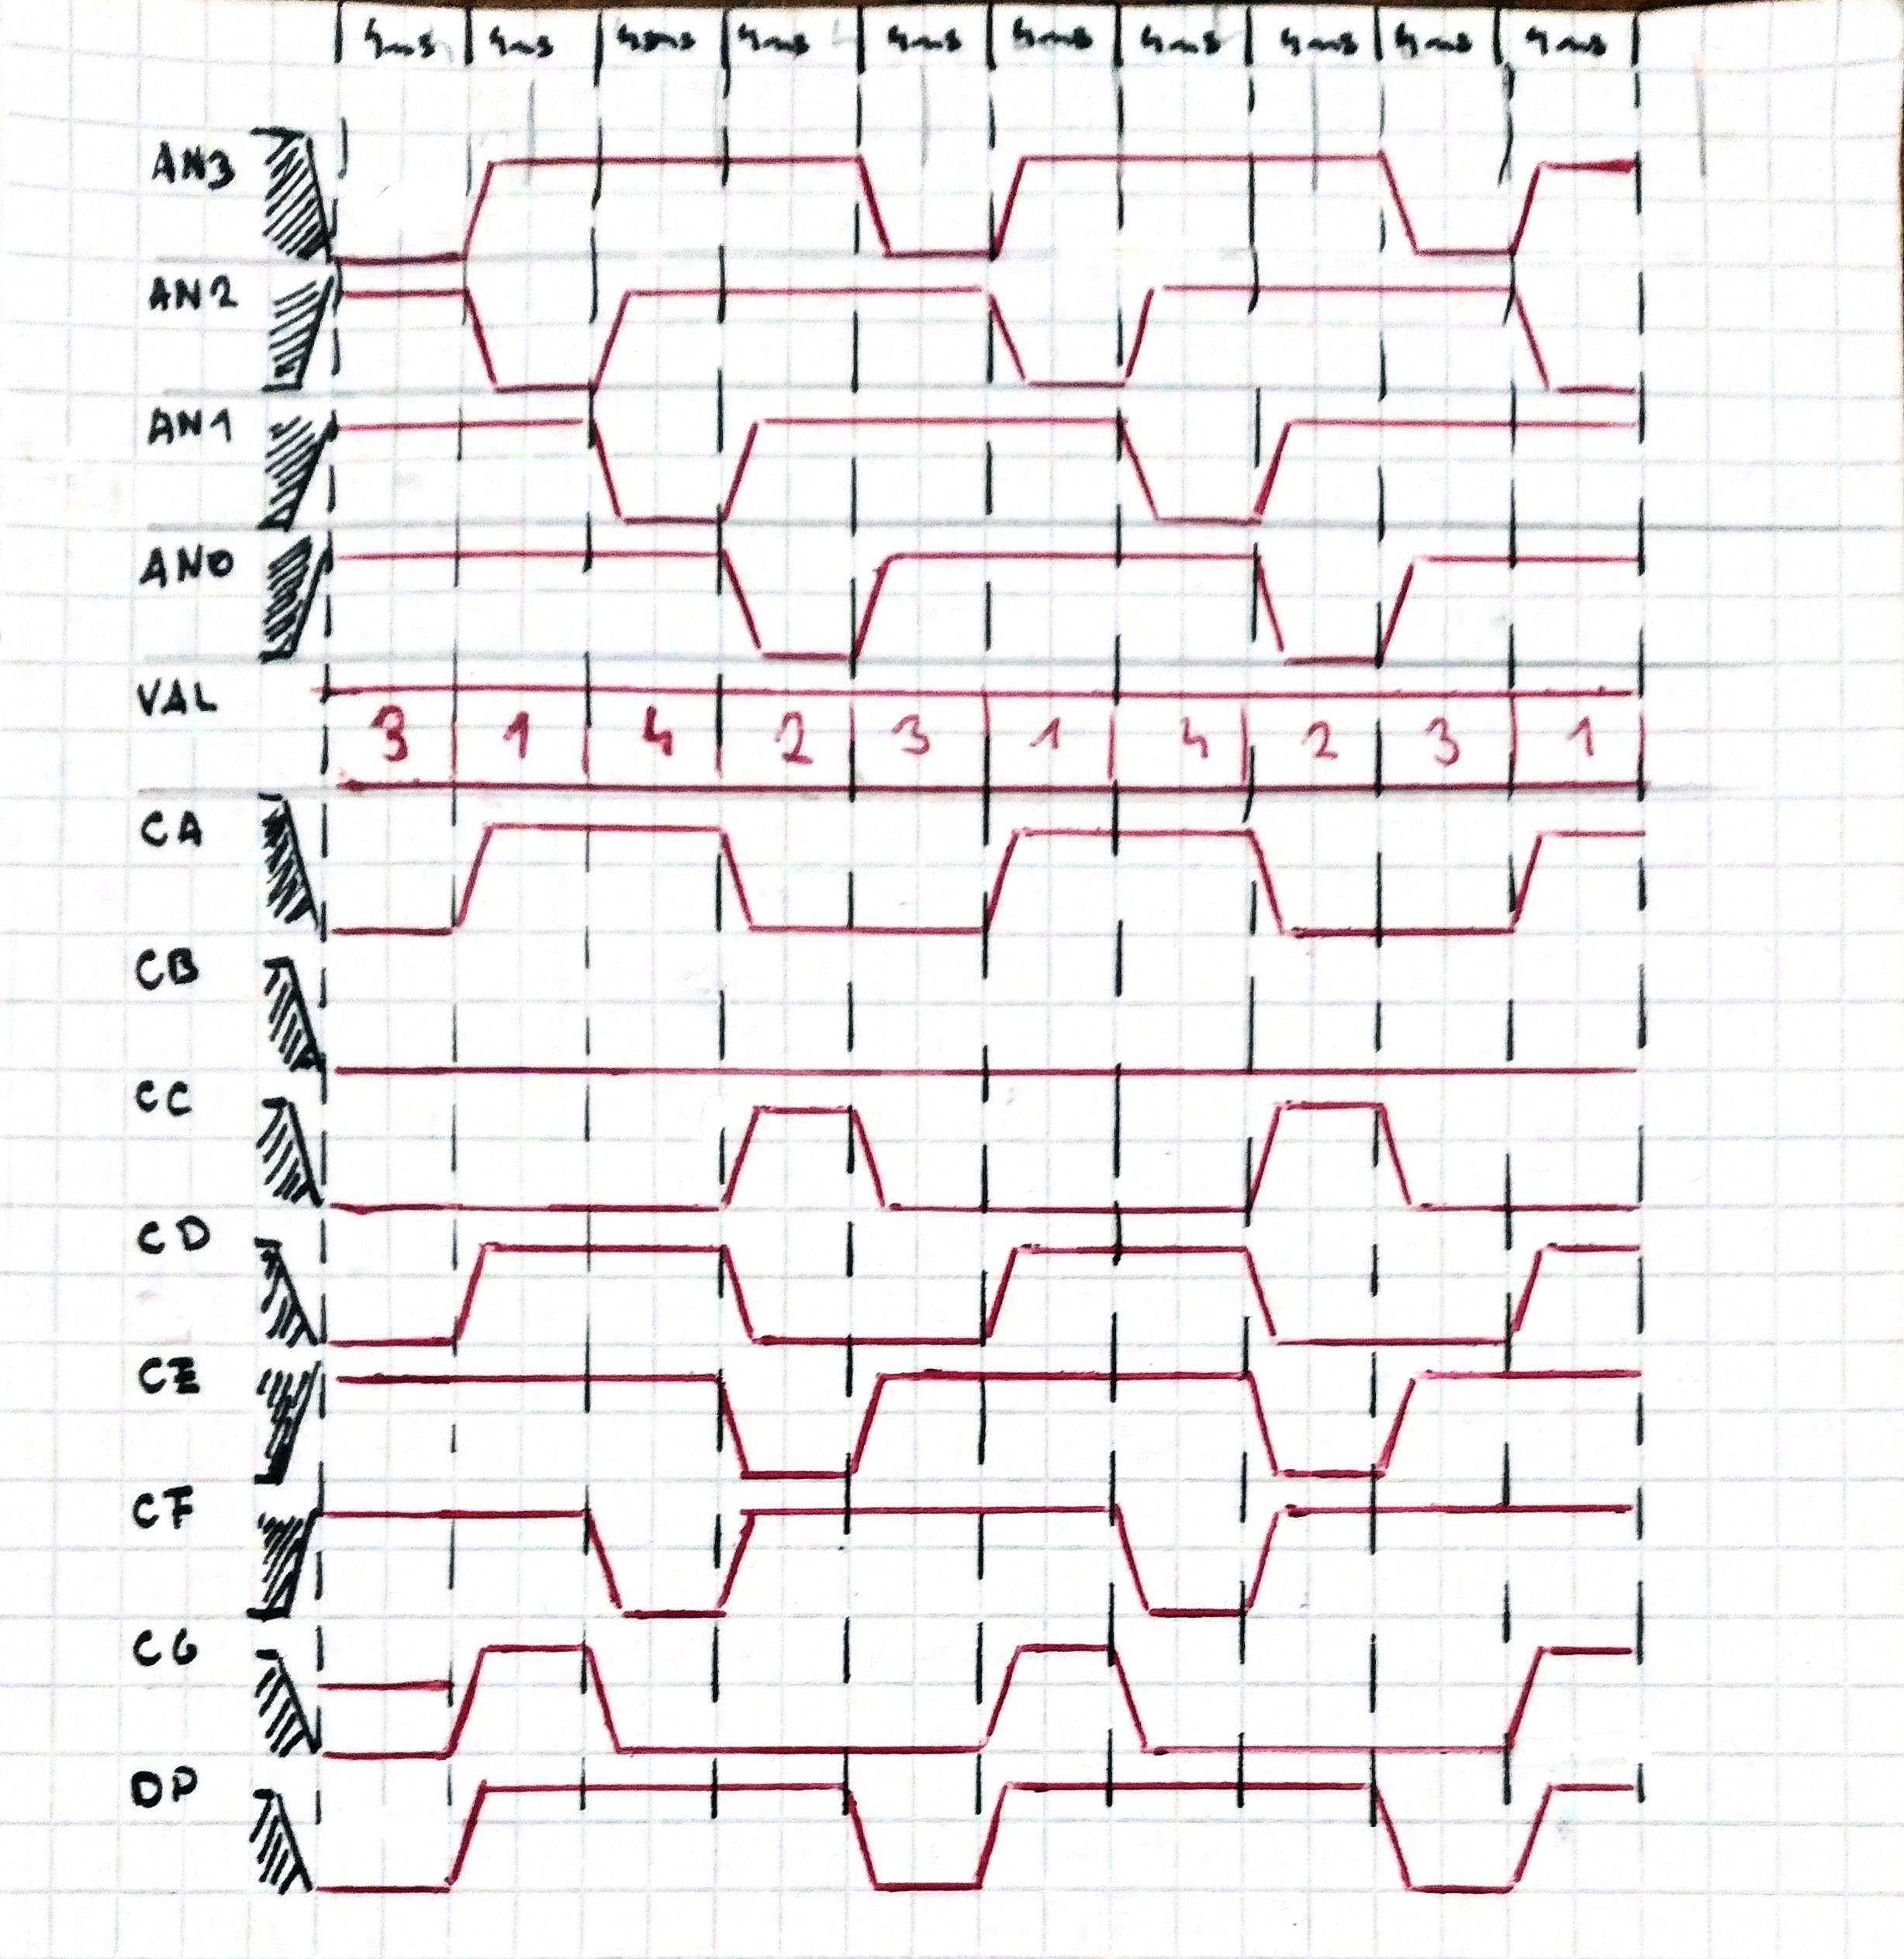 4ms 4ms 4ms 4ms 4ms 4ms 4ms 4ms 4ms 4ms
AN3
AN2
AN1
AN0
VAL 3 1 4 2 3 1 4 2 3 1
CA
CB
CC
CD
CE
CF
CG
DP